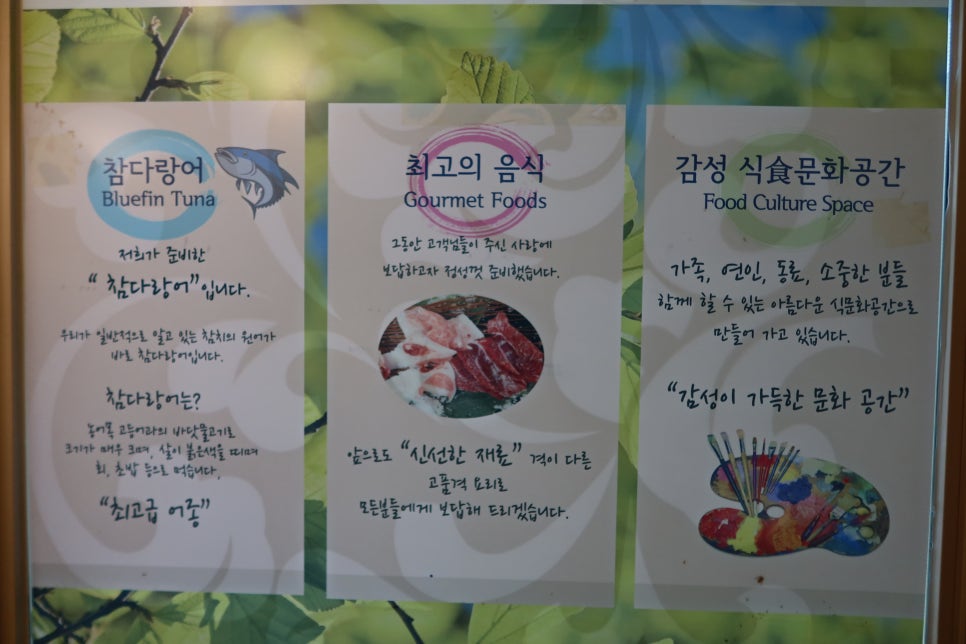 참다랑어
Bluefin Tuna
저희가 준비한
“ 참다랑어”입니다.
우리가 일반적으로 알고 있는 참치의 원어가
바로 참다랑어입니다.
참다랑어는?
농어목 고등어과의 바닷물고기로
크기가 매우 크며, 살이 붉은색을 띠며
회, 초밥 등으로 먹습니다.
“최고급 어종”
최고의 음식
Gourmet Foods
그동안 고객님들이 주신 사랑에
보답하고자 정성껏 준비했습니다.
앞으로도 “신선한 재료” 격이 다른
고품격 요리로
모든분들에게 보답해 드리겠습니다.
감성 식食문화공간
Food Culture Space
가족, 연인, 동료, 소중한 분들
함께 할 수 있는 아름다운 식문화공간으로
만들어 가고 있습니다.
“감성이 가득한 문화 공간”